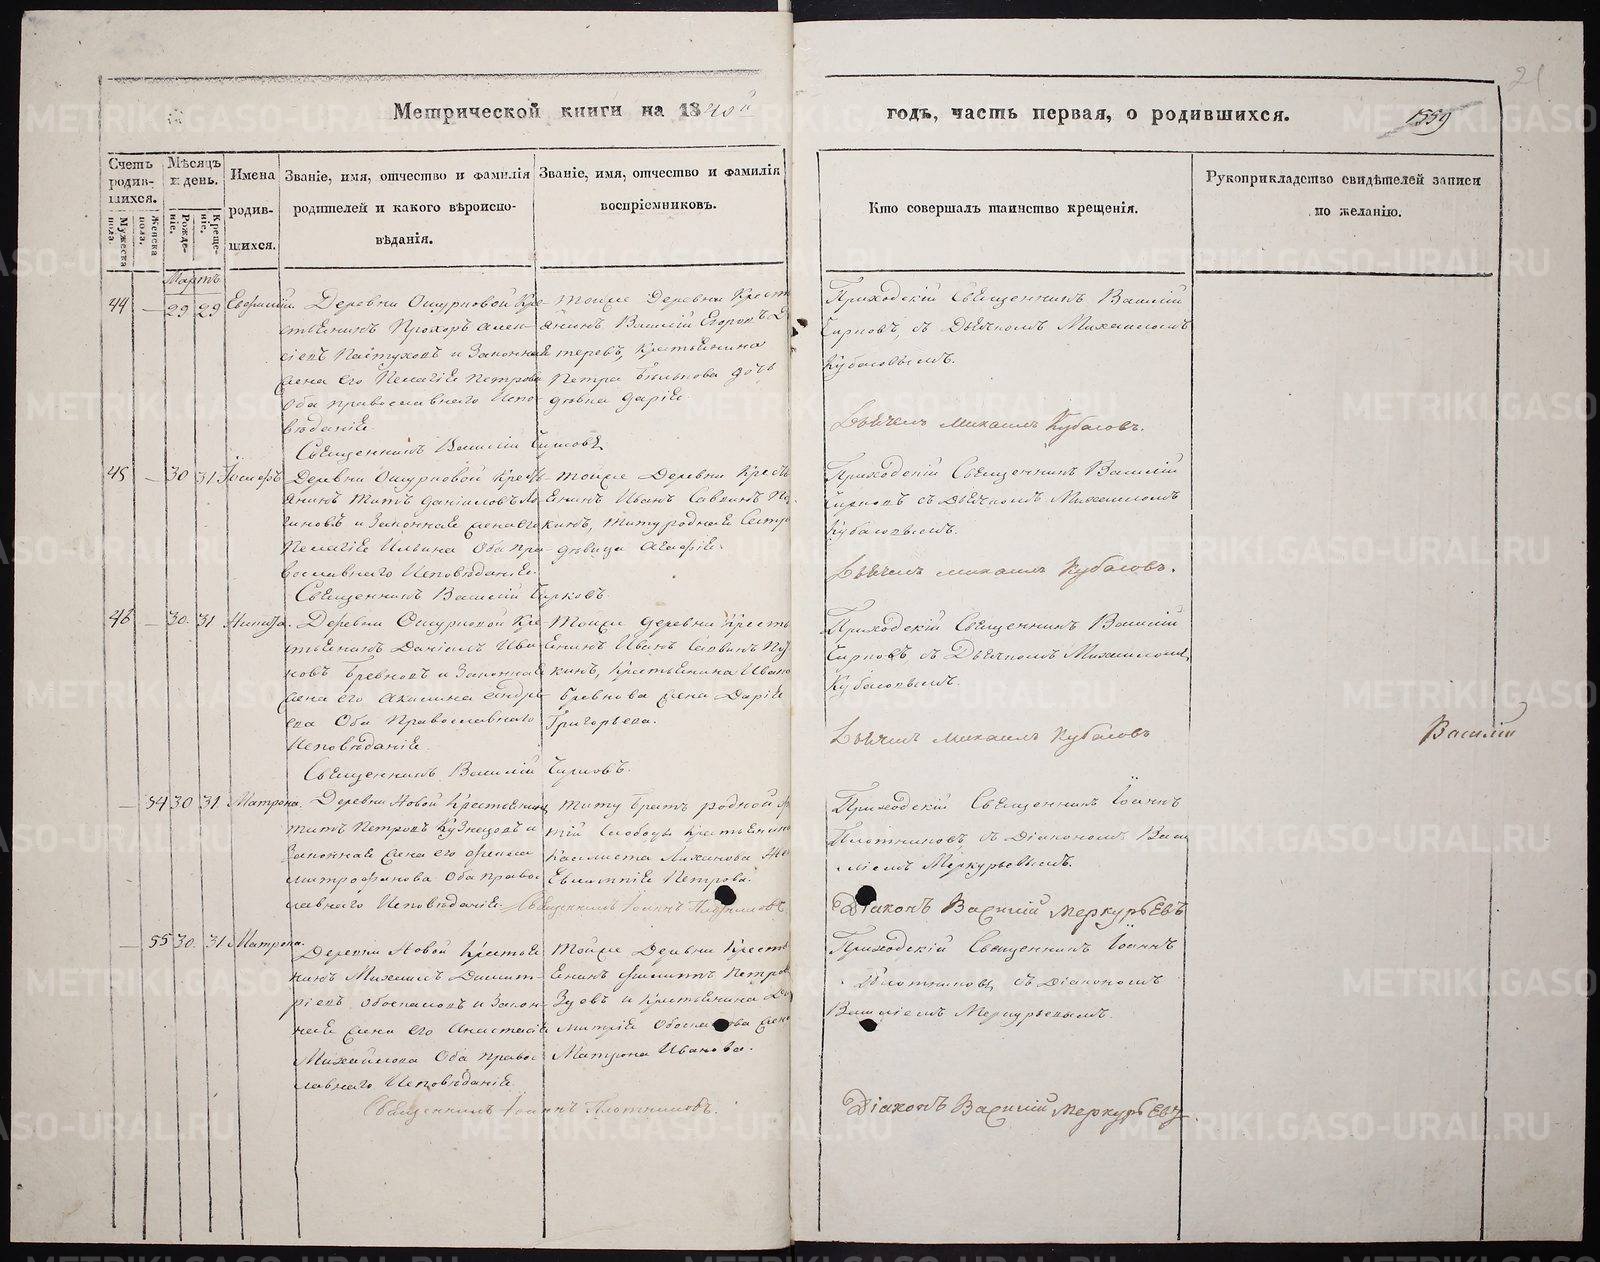 21
Метрической книги на 1840й
годъ, часть первая, о родившихся.
1559
Счетъ родив-шихся.
Мужеска пола.
Женска пола.
Мѣсяцъ и день.
Рожде-ніе.
Креще-ніе.
Имена
родив-
шихся.
Званіе, имя, отчество и фамилія
родителей и какого вѣроиспо-
вѣданія.
Званіе, имя, отчество и фамилія
воспріемниковъ.
Кто совершалъ таинство крещенія.
Рукоприкладство свидѣтелей записи
по желанію.
Мартъ
44 — 29 29 Евфимій
Деревни Ошурковой Кре-
стьенинъ Прохоръ Алек-
сіевъ Пастуховъ и Законная
жена его Пелагіе Петрова
Оба православнаго Испо-
вѣданіе.
Священникъ Василій Чирковъ
Тойже Деревни Крест
Василій Егоровъ
Крестьенина
Петра дочь
дѣвка Даріе.
Приходскій Священникъ Василій
Чирковъ, съ Дьячкомъ Михаиломъ
Кубасовымъ.
Дьячекъ Михаилъ Кубасовъ.
45 — 30 31 Іосифъ
Деревни Ошурковой Кресть
янинъ Титъ Даніиловъ Ло
гиновъ и Законная жена его
Пелагіе Ильина Оба пра-
вославнаго Исповѣданіе.
Священникъ Василій Чирковъ
Тойже Деревни Кресть
енинъ Иванъ Савинъ Пу
кинъ, Титу родная Сестра
дѣвица Агафіе.
Приходскій Священникъ Василій
Чирковъ съ Дьячкомъ Михаиломъ
Кубасовымъ.
Дьячекъ Михаилъ Кубасовъ.
46 — 30. 31 Никита.
Деревни Ошурковой Кре
стьенинъ Даніилъ Ива
новъ Бревновъ и Законная
жена его Акилина Андре
ева Оба Православнаго
Исповѣданіе.
Священникъ Василій Чирковъ.
Тойже Деревни Кресть
енинъ Иванъ Савинъ Пу
кинъ, Крестьенина Ивана
Бревнова жена Даріе
Григорьева.
Приходскій Священникъ Василій
Чирковъ съ Дьячкомъ Михаиломъ
Кубасовымъ.
Дьячекъ Михаилъ Кубасовъ
Василій
— 54 30 31 Матрона.
Деревни Новой Крестьенинъ
Титъ Петровъ Кузнецовъ и
Законная жена его Фекла
Митрофанова Оба право
славнаго Исповѣданіе.
Священникъ Іоаннъ Плотниковъ
Титу братъ родной
Слободы Крестьенинъ
Калиста
Евлампіе Петрова.
Приходскій Священникъ Іоаннъ
Плотниковъ съ Діакономъ Васи
ліемъ Меркурьевымъ.
Діаконъ Василій Меркурьевъ
— 55 30. 31 Матрона.
Деревни Новой Крестье
нинъ Михаилъ Димит-
ріевъ и Закон-
ная жена его Анастасіе
Михайлова Оба право
славнаго Исповѣданіе
Священникъ Іоаннъ Плотниковъ.
Тойже Деревни Кресть
енинъ Филиппъ Петровъ
Зуевъ и Крестьенина Ди
митріе жена
Матрона Иванова.
Приходскій Священникъ Іоаннъ
Плотниковъ, съ Діакономъ
Василіемъ Меркурьевымъ.
Діаконъ Василій Меркурьевъ
METRIKI.GASO-URAL.RU